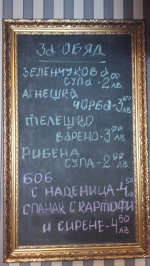 За ОБЯД
ЗЕЛЕНЧУКОВА
СУПА - 2.00 ЛВ.
АГНЕШКА
ЧОРБА - 3.00
ТЕЛЕШКО
ВАРЕНО - 3.90 ЛВ.
РИБЕНА
СУПА - 2.90 ЛВ.
БОБ
С НАДЕНИЦА - 4.50
СПАНАК С КАРТОФИ
И СИРЕНЕ - 4.50